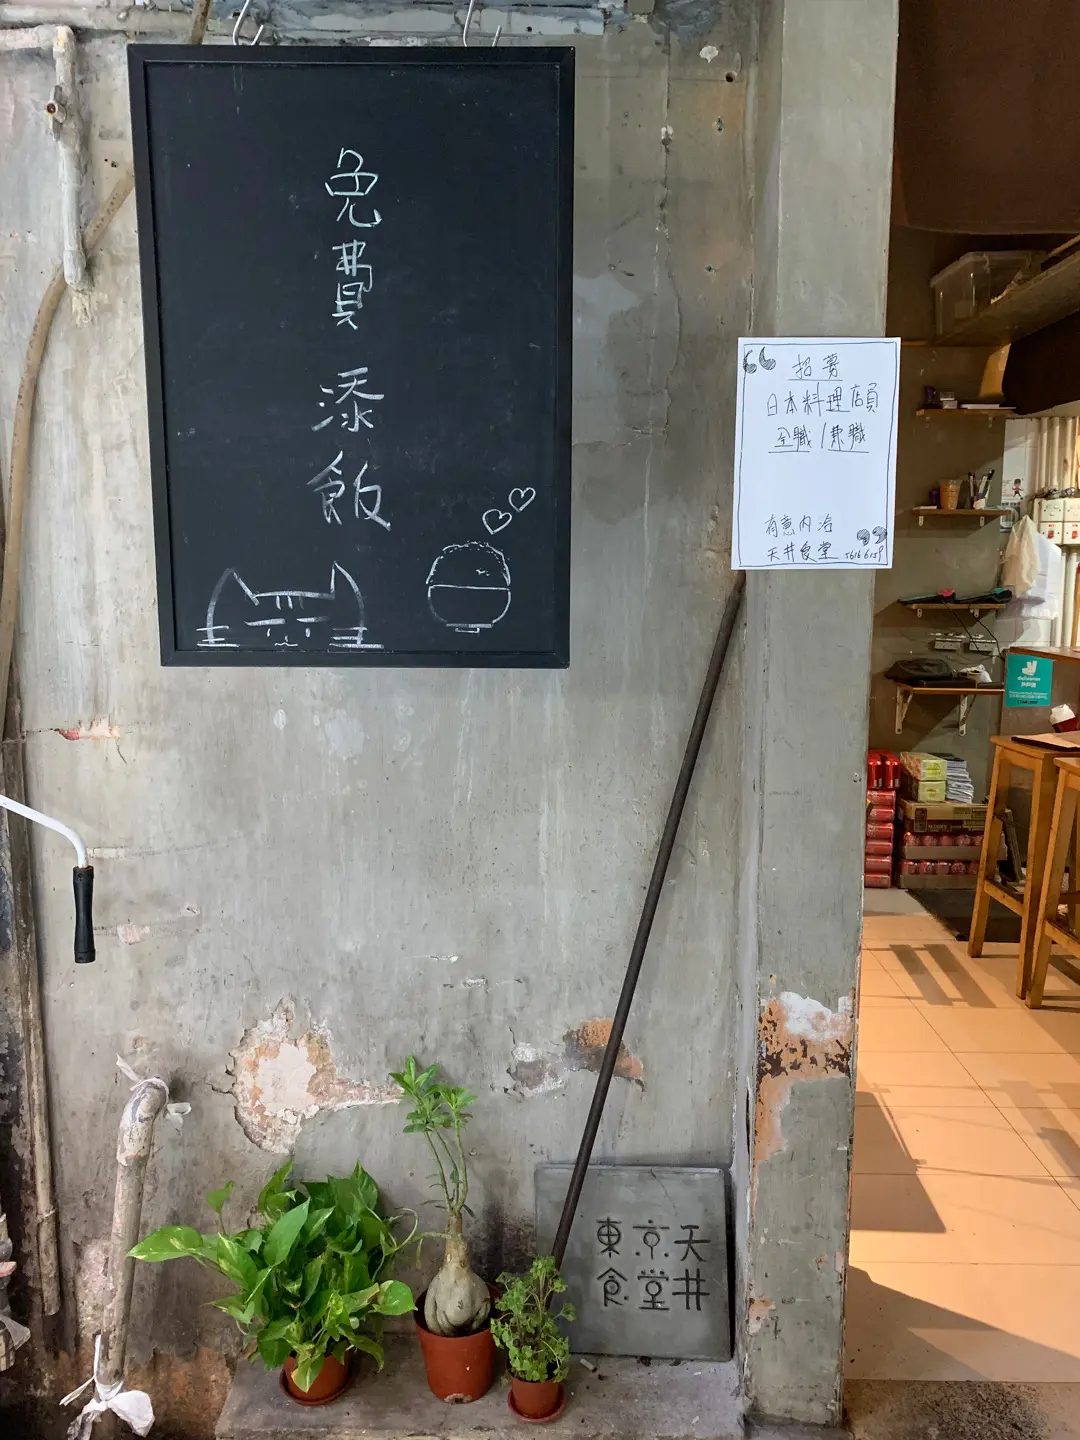 免費添飯
招募
日本料理店員
全職/兼職
有意內洽
天井食堂
東京天
食堂井